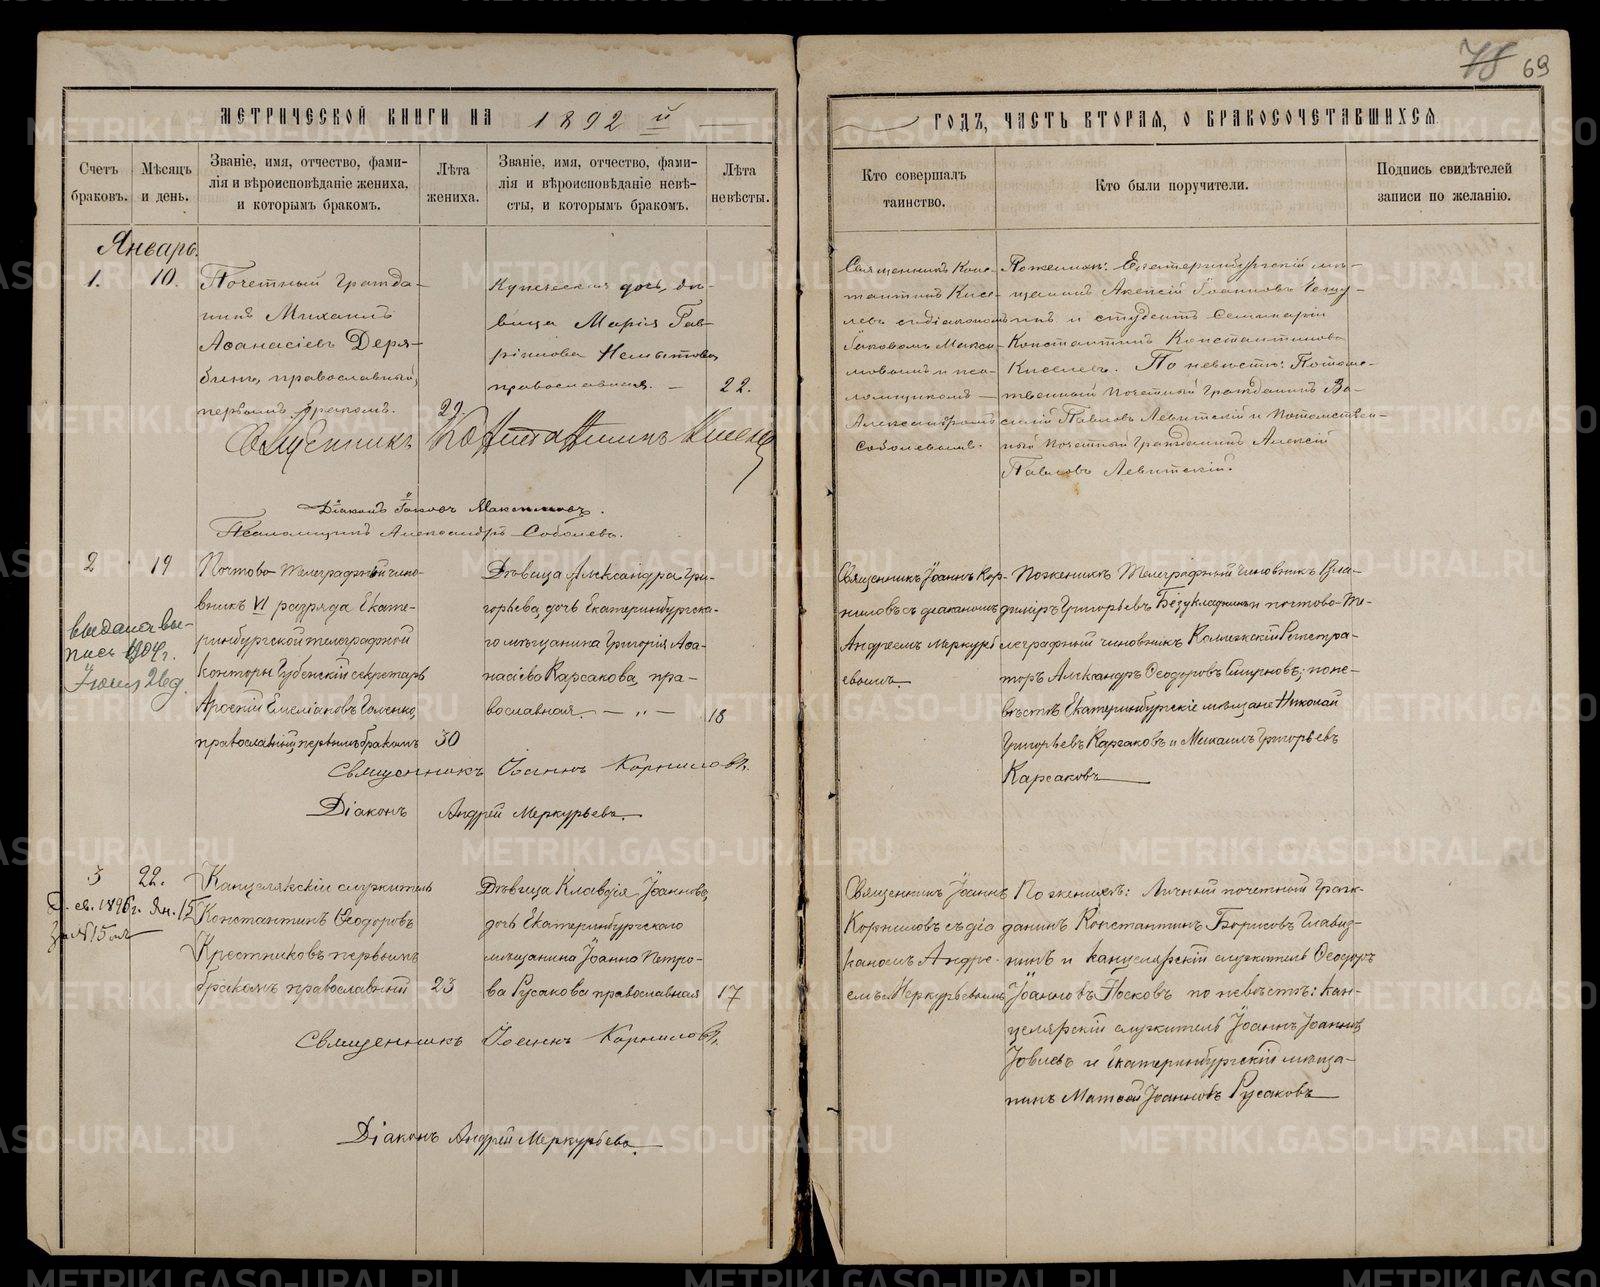 78 69
МЕТРИЧЕСКОЙ КНИГИ НА 1892 й
ГОДЪ, ЧАСТЬ ВТОРАЯ, О БРАКОСОЧЕТАВШИХСЯ
Счетъ браковъ.
Мѣсяцъ и день.
Званіе, имя, отчество, фами-
лія и вѣроисповѣданіе жениха,
и которымъ бракомъ.
Лѣта
жениха.
Званіе, имя, отчество, фами-
лія и вѣроисповѣданіе невѣ-
сты, и которымъ бракомъ.
Лѣта
невѣсты.
Кто совершалъ
таинство.
Кто были поручители.
Подпись свидѣтелей
записи по желанію.
Январь.
1. 10.
Почетный гражда-
нинъ Михаилъ
Аѳанасіевъ Деря-
бинъ, православный,
первымъ бракомъ.
22.
Купеческая дочь, дѣ-
вица Марія Гав-
ріилова
православная. —
22.
Священникъ Конс-
тантинъ Кисе-
левъ съ діакономъ
Іаковомъ Макси-
мовымъ и пса-
ломщикомъ
Александромъ
Соболевымъ.
По женихѣ: Екатеринбургскій мѣ-
щанинъ Алексій Іоанновъ
и студентъ Семинаріи
Константинъ Константиновъ
Киселевъ. По невѣстѣ: Потомс-
твенный Почетный Гражданинъ Ва-
силій Павловъ Левитскій и Потомствен-
ный Почетный Гражданинъ Алексій
Павловъ Левитскій.
Священникъ Константинъ Киселев
Діаконъ Іаковъ Максимовъ.
Псаломщикъ Александръ Соболевъ.
2 19
выдана вы-
пись 1904 г.
Іюня 26 д.
Почтово-телеграфный чино-
вникъ VI разряда Екате-
ринбургской телеграфной
конторы Губернскій секретарь
Арсеній Емеліановъ Гоменко,
православный, первымъ бракомъ
30
Дѣвица Александра Гри-
горьева, дочь Екатеринбургска-
го мѣщанина Григорія Аѳа-
насіева Карсакова, пра-
вославная. — „ —
18
Священникъ Іоаннъ Кор-
ниловъ съ діакономъ
Андреемъ Меркурь
евымъ.
По женихѣ Телеграфный чиновникъ Вла-
диміръ Григорьевъ Безукладниковъ и почтово-те-
леграфный чиновникъ Коллежскій Регистра-
торъ Александръ Ѳеодоровъ Смирновъ; по не-
вѣстѣ Екатеринбургскіе мѣщане Николай
Григорьевъ Карсаковъ и Михаилъ Григорьевъ
Карсаковъ
Священникъ Іоаннъ Корниловъ.
Діаконъ Андрей Меркурьевъ.
3 22.
св. 1896 г. Ян. 15
за № 15
Канцелярскій служитель
Константинъ Ѳеодоровъ
Крестниковъ первымъ
бракомъ православный
23
Дѣвица Клавдія Іоаннова,
дочь Екатеринбургскаго
мѣщанина Іоанна Петро-
ва Русакова православная
17
Священникъ Іоаннъ
Корниловъ съ діа
кономъ Андре-
емъ Меркурьевымъ
По женихѣ: Личный почетный граж-
данинъ Константинъ Борисовъ
и канцелярскій служитель Ѳеодоръ
Іоанновъ Носковъ по невѣстѣ: кан-
целярскій служитель Іоаннъ Іоанновъ
Іовлевъ и Екатеринбургскій мѣща-
нинъ Матѳей Іоанновъ Русаковъ
Священникъ Іоаннъ Корниловъ.
Діаконъ Андрей Меркурьевъ.
METRIKI.GASO-URAL.RU